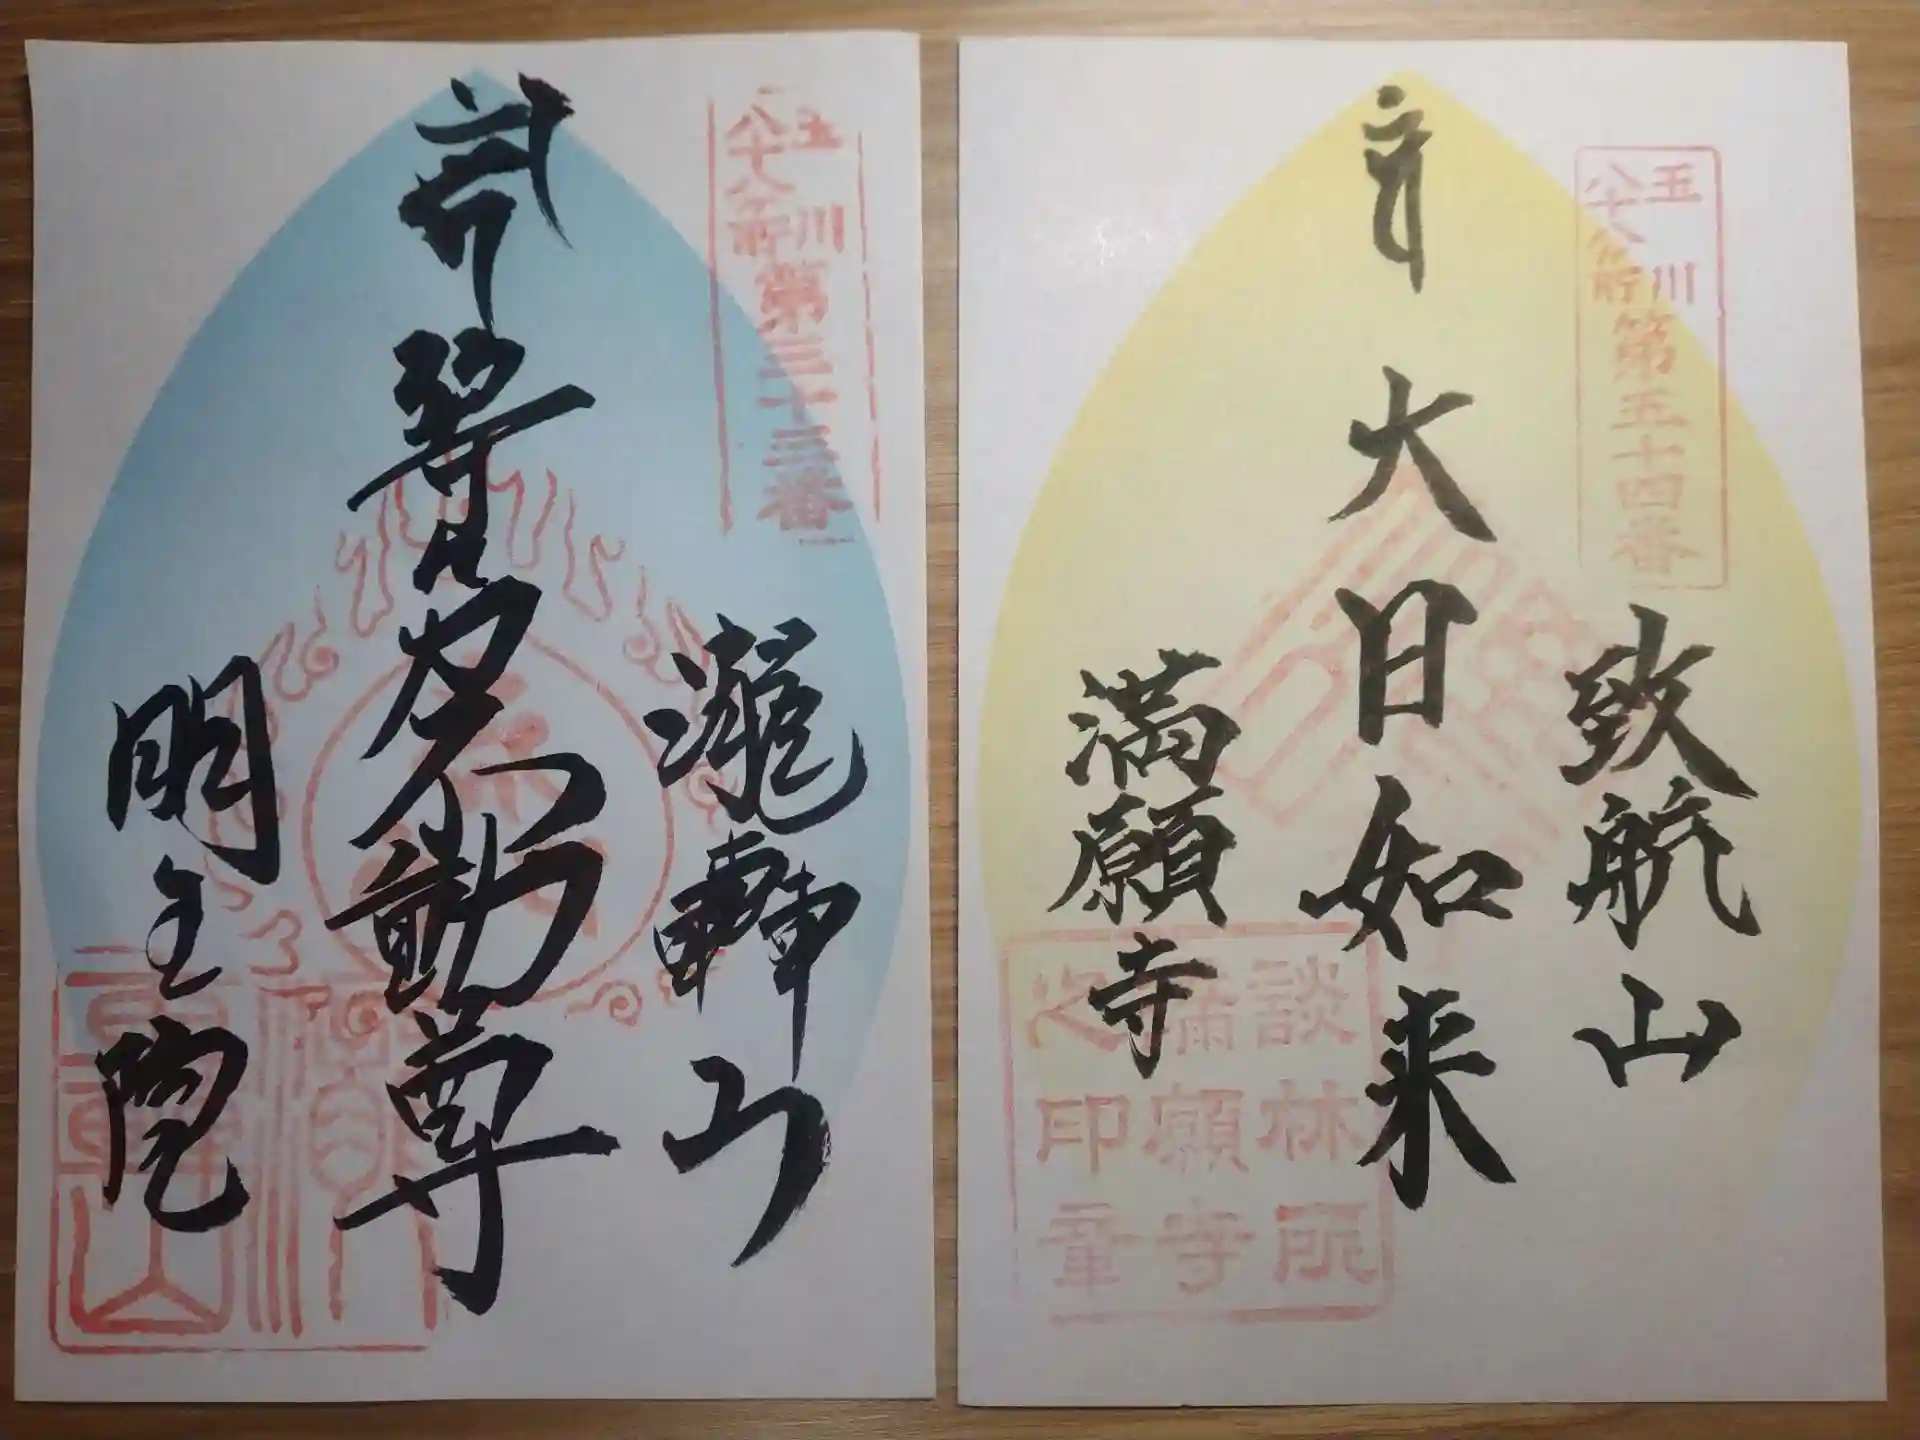 玉川
八十八ヶ所
第三十三番
瀧轟山
等々力不動尊
明王院
玉川
八十八ヶ所
第五十四番
致航山
大日如来
満願寺
談林所
満願寺
之印章